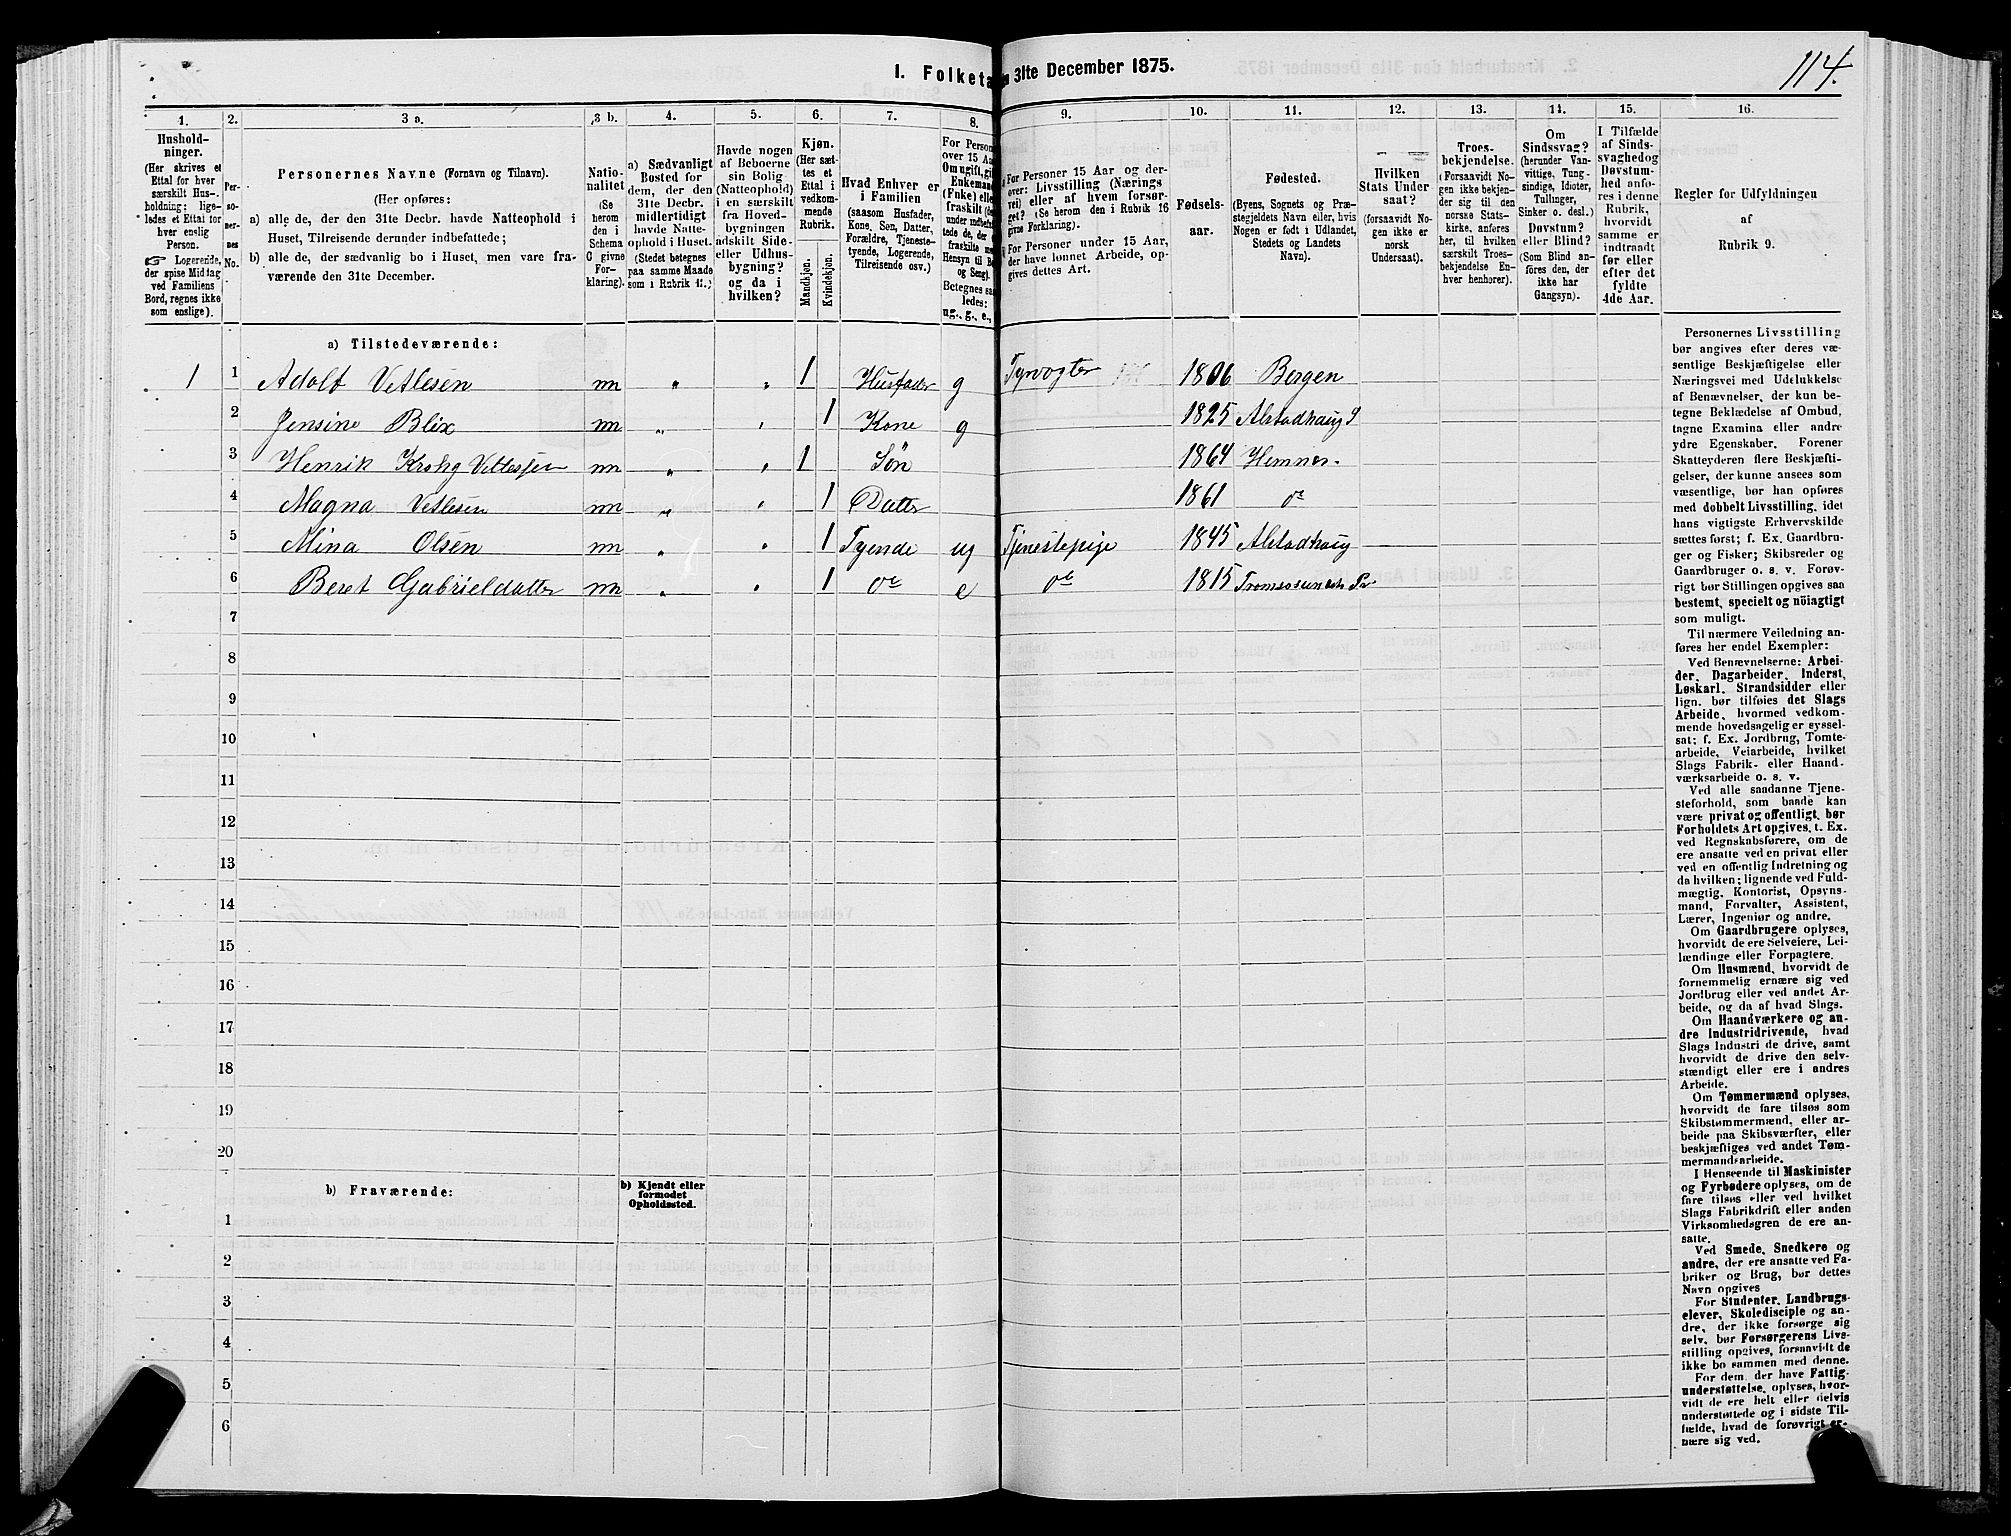 I. Folketa n 31te December 1875.
114.
1. 2. 3 a. 3 b. 4. 5. 6. 7. 8. 9. 10. 11. 12. 13. 14. 15. 16.
Husholdninger.
(Her skrives et
Ettal for hver
særskilt Husholdning;
ligeledes
et Ettal for
hver enslig
Person.
Logerende,
der spise Middag
ved Familiens
Bord, regnes ikke
som enslige).
Personernes No.
Personernes Navne (Fornavn og Tilnavn).
(Her opføres:
a) alle de, der den 31te Decbr. havde Natteophold i
Huset, Tilreisende derunder indbefattede;
b) alle de, der sædvanlig bo i Huset, men vare fraværende
den 31te December.
Nationalitet
(Se
herom
den i
Schema
C givne
Forklaring).
a) Sædvanligt
Bosted for
dem, der den
31te Decbr.
midlertidigt
havde Natteophold
i Huset.
(Stedet betegnes
paa samme Maade
som i Rubrik 11.)
Havde nogen
af Beboerne
sin Bolig
(Natteophold)
i en særskilt
fra Hovedbygningen
adskilt Side-
eller Udhusbygning?
og da i
hvilken?
Kjøn.
(Her sættes
et
Ettal i
vedkommende
Rubrik.
Mandkjøn.
Kvindekjøn.
Hvad Enhver er
i Familien
(saasom Husfader,
Kone, Søn, Datter,
Forældre, Tjenestetyende,
Logerende,
Tilreisende osv.)
For Person
over 15 Aa
Om ugift, gi
Enkemand
(Fnke) elle
fraskilt
Betegnes saaledes:
ug., g., e.,
For Personer 15 Aar og derover:
Livsstilling (Næringsvei)
eller af hvem forsørget?
(Se herom i Rubrik 16
givne Forklaring).
For Personer under 15 Aar,
der have lønnet Arbeide, opgives
dettes Art.
Fødselsaar.
Fødested.
(Byens, Sognets og Præstegjeldets
Navn eller, hvis
Nogen er født i Udlandet,
Stedets og Landets
Navn).
Hvilken
Stats Undersaat?
(forsaavidt Nogen
ikke er
norsk
Undersaat).
Troesbekjendelse.
(Forsaavidt Nogen
ikke bekjender
sig til den
norske Statskirke,
anføres
her, til hvilken
særskilt Troesbekjendelse
Enhver
henhører).
Om
Sindssvag?
(herunder Vanvittige,
Tungsindige,
Idioter,
Tullinger,
Sinker o. desl.)
Døvstum?
eller Blind?
(Som Blind anføres
den, der
ikke har
Gangsyn).
I Tilfælde
af Sindssvaghed
og
Døvstumhed
anføres
i denne
Rubrik,
hvorvidt
samme er
indtraadt
før eller
efter det
fyldte
4de Aar.
Regler for Udfyldningen
af
Rubrik 9.
a) Tilstedeværende:
1 1 Adolf Vetlesen nn „ „ 1 Husfader g Tyrvogter 1806 Bergen
2 Jensine Blix nn „ „ 1 Kone g 1825 Alstadhaug
3 Henrik Krohg Vetlesen nn „ „ 1 Søn 1864 Hemnæs
4 Magna Vetlesen nn „ „ 1 Datter 1861 do
5 Mina Olsen nn „ „ 1 Tyende ug Tjenestepige 1845 Alstadhaug
6 Beret Gabrieldatter nn „ „ 1 do e do 1815 Tromsøsundets Pr
7
8
9
10
11
12
13
14
15
16
17
18
19
20
b) Fraværende:
b) Kjendt eller
formodet
Opholdssted.
1
2
3
4
5
6
Personernes Livsstilling
bør angives efter deres væsentlige
Beskjæftigelse eller
Næringsvei med Udelukkelse
af Benævnelser, der kun betegne
Beklædelse af Ombud,
tagne Examina eller andre
ydre Egenskaber. Forener
Skatteyderen flere Beskjæftigelser,
der kunne ansees som
væsentlige, bør han opføres
med dobbelt Livsstilling, idet
hans vigtigste Erhvervskilde
sættes først; f. Ex. Gaardbruger
og Fisker; Skibsreder og
Gaardbruger o. s. v. Forøvrigt
bør Stillingen opgives saa
bestemt, specielt og nöiagtigt
som muligt.
Til nærmere Veiledning anføres
her endel Exempler:
Ved Benævnelserne: Arbeider,
Dagarbeider, Inderst,
Løskarl, Strandsidder eller
lign. bør tilføies det Slags
Arbeide, hvormed vedkommende
hovedsagelig er sysselsat;
f. Ex. Jordbrug, Tomtearbeide,
Veiarbeide, hvilket
Slags Fabrik- eller Haandværksarbeide
o. s. v.
Ved alle saadanne Tjenesteforhold,
som baade kan
være privat og offentligt, bør
Forholdets Art opgives, t. Ex.
ved Regnskabsførere, om de
ere ansatte ved en privat eller
ved en offentlig Indretning og
da hvilken; lignende ved Fuldmægtig,
Kontorist, Opsynsmand,
Forvalter, Assistent,
Lærer, Ingeniør og andre.
Om Gaardbrugere oplyses,
hvorvidt de ere Selveiere, Leilændinge
eller Forpagtere.
Om Husmænd, hvorvidt de
fornemmelig ernære sig ved
Jordbrug eller ved andet Arbeide,
og da af hvad Slags.
Om Haandværkere og andre
Industridrivende, hvad
Slags Industri de drive, samt
hvorvidt de drive den selvstændigt
eller ere i andres
Arbeide.
Om Tømmermænd oplyses,
hvorvidt de fare tilsøs som
Skibstømmermænd, eller arbeide
paa Skibsværfter, eller
beskjæftiges ved andet Tømmermandsarbeide.
I Henseende til Maskinister
og Fyrbødere oplyses, om de
fare tilsøs eller ved hvilket
Slags Fabrikdrift eller anden
Virksomhedsgren de ere ansatte.
Ved Smede, Snedkere og
andre, der ere ansatte ved Fabriker
og Brug, bør dettes
Navn opgives
For Studenter, Landbrugselever,
Skoledisciple og andre,
der ikke forsørge sig
selv, bør Forsørgerens Livsstilling
opgives, forsaavidt de
ikke bo sammen med denne.
For dem, der have Fattigunderstøttelse,
oplyses, hvorvidt
de ere helt eller delvis
understøttede og i sidste Tilfælde,
hvad de forøvrigt ernære
sig ved.